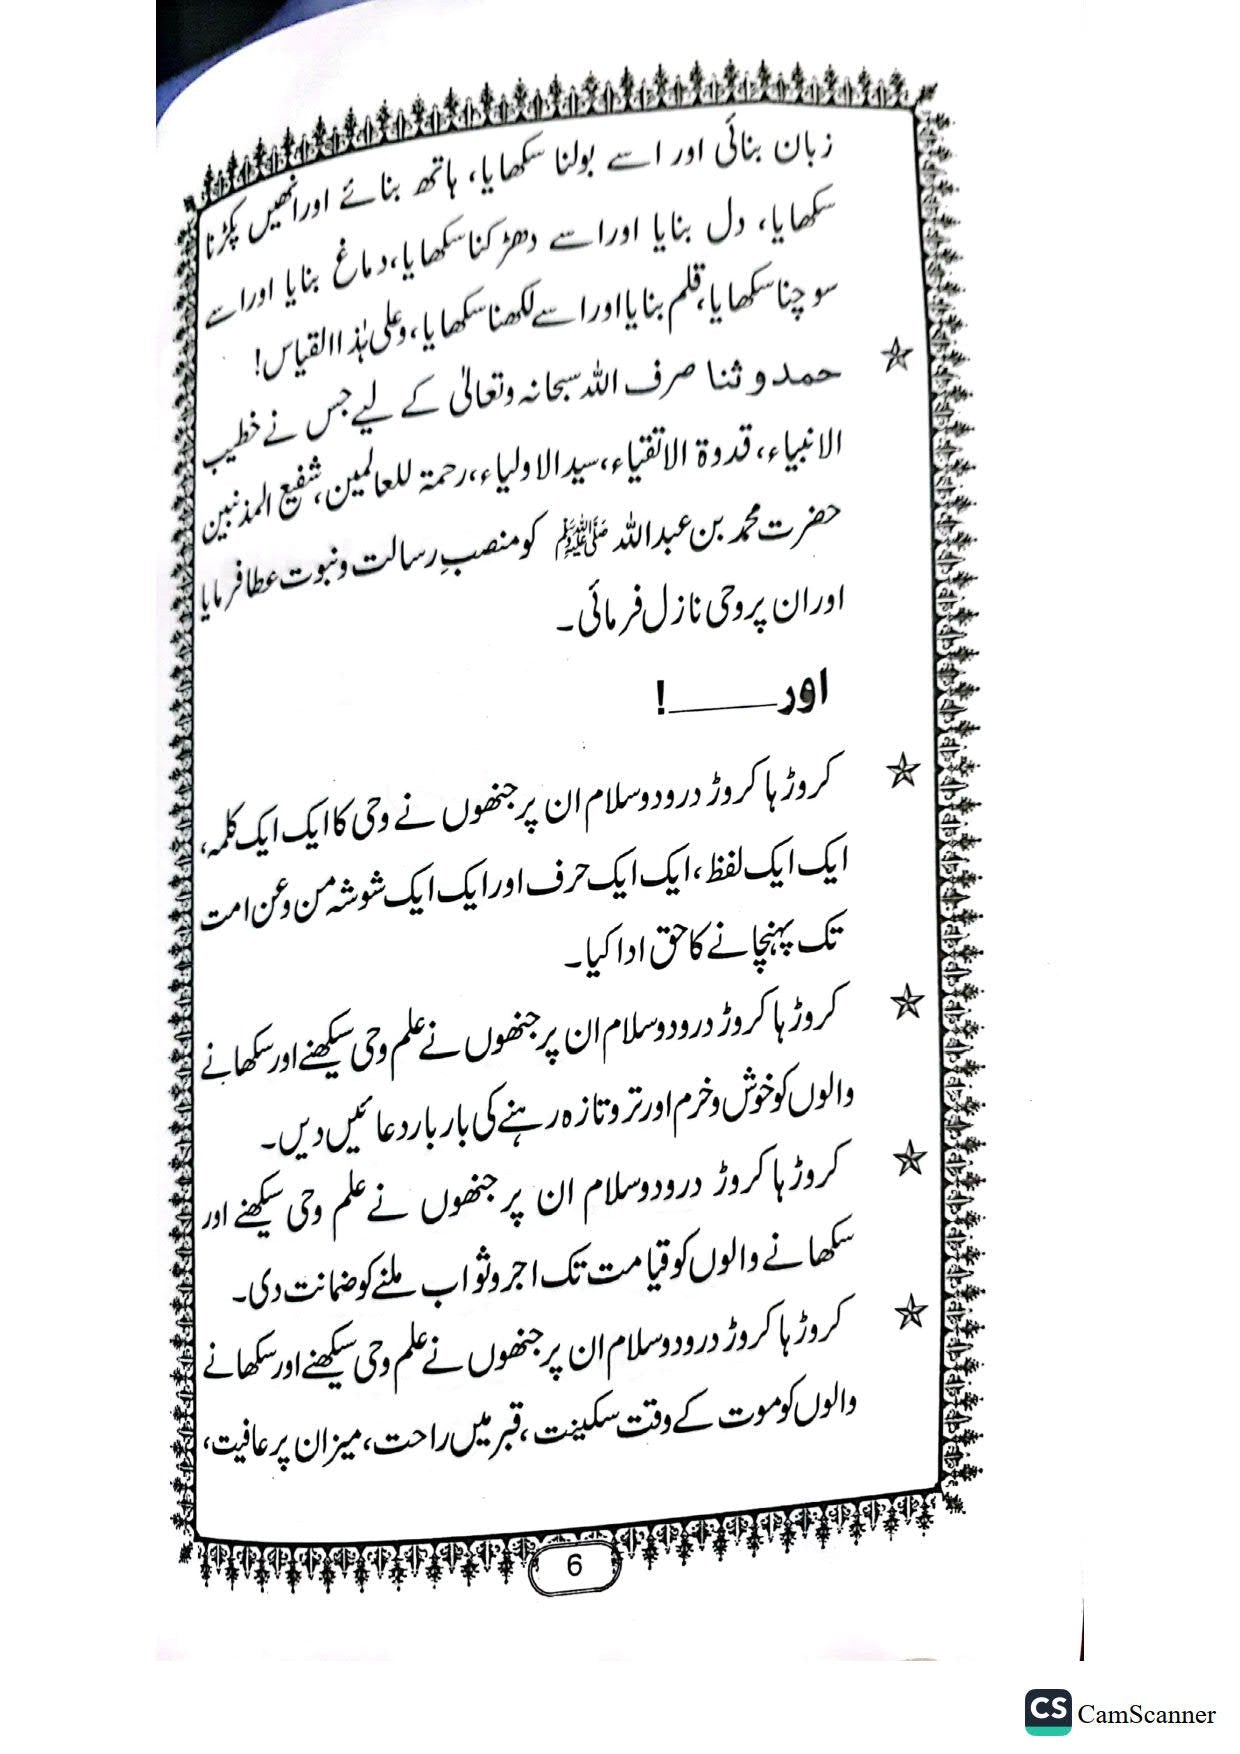 زبان بنائی اور اسے بولنا سکھایا، ہاتھ بنائے اور انھیں پکڑنا
سکھایا، دل بنایا اور اسے دھڑکنا سکھایا، دماغ بنایا اور اسے
سوچنا سکھایا، قلم بنایا اور اسے لکھنا سکھایا، وعلی ہٰذا القیاس!
☆ حمد و ثنا صرف اللہ سبحانہ وتعالیٰ کے لیے جس نے خطیب
الانبیاء، قدوۃ الاتقیاء، سید الاولیاء، رحمۃ للعالمین، شفیع المذنبین
حضرت محمد بن عبداللہ ﷺ کو منصبِ رسالت و نبوت عطا فرمایا
اور ان پر وحی نازل فرمائی۔
اور ـــــــــ!
☆ کروڑ ہا کروڑ درود و سلام ان پر جنھوں نے وحی کا ایک ایک کلمہ،
ایک ایک لفظ، ایک ایک حرف اور ایک ایک شوشہ من و عن امت
تک پہنچانے کا حق ادا کیا۔
☆ کروڑ ہا کروڑ درود و سلام ان پر جنھوں نے علم وحی سیکھنے اور سکھانے
والوں کو خوش و خرم اور تر و تازہ رہنے کی بار بار دعائیں دیں۔
☆ کروڑ ہا کروڑ درود و سلام ان پر جنھوں نے علم وحی سیکھنے اور
سکھانے والوں کو قیامت تک اجر و ثواب ملنے کو ضمانت دی۔
☆ کروڑ ہا کروڑ درود و سلام ان پر جنھوں نے علم وحی سیکھنے اور سکھانے
والوں کو موت کے وقت سکینت، قبر میں راحت، میزان پر عافیت،
6
CS CamScanner